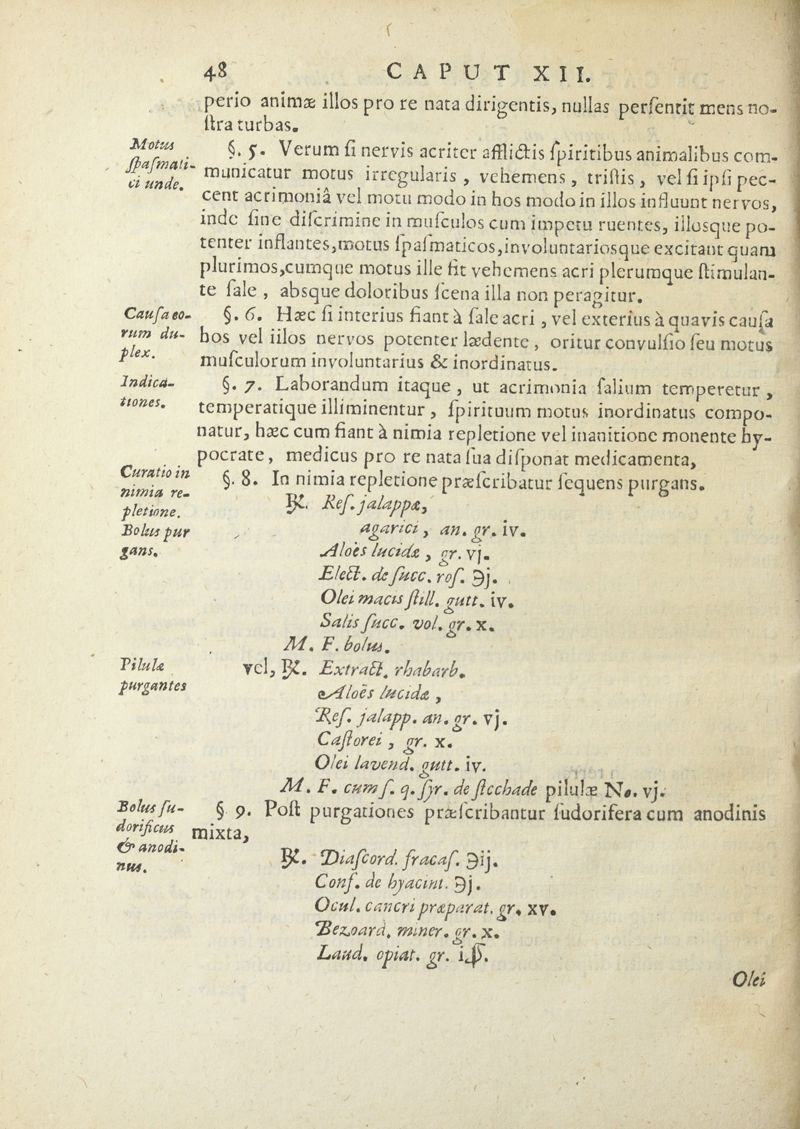 48 CAPUT XII.
perio animæ illos pro re nata dirigentis, nullas perſentit mens no-
ſtra turbas.
Motus
ſpaſmati-
ci unde.
§. 5. Verum ſi nervis acriter afflictis ſpiritibus animalibus com-
municatur motus irregularis, vehemens, triſtis, vel ſi ipſi pec-
cent acrimoniâ vel motu modo in hos modo in illos influunt nervos,
inde ſine diſcrimine in muſculos cum impetu ruentes, illosque po-
tenter inflantes, motus ſpaſmaticos, involuntariosque excitant quam
plurimos, cumque motus ille fit vehemens acri plerumque ſtimulan-
te ſale, absque doloribus ſcena illa non peragitur.
Cauſa eo-
rum du-
plex.
§. 6. Hæc ſi interius fiant à ſale acri, vel exterius à quavis cauſa
hos vel illos nervos potenter lædente, oritur convulſio ſeu motus
muſculorum involuntarius & inordinatus.
Indica-
tiones.
§. 7. Laborandum itaque, ut acrimonia ſalium temperetur,
temperatique illi minentur, ſpirituum motus inordinatus compo-
natur, hæc cum fiant à nimia repletione vel inanitione monente hy-
pocrate, medicus pro re nata ſua diſponat medicamenta,
Curatio in
nimia re-
pletione.
§. 8. In nimia repletione præſcribatur ſequens purgans.
Bolus pur
gans.
℞. Reſ. jalappæ,
agarici, an. gr. iv.
Aloës lucidæ, gr. vj.
Elect. de ſucc. roſ. ℈j.
Olei macis ſtill. gutt. iv.
Salis ſucc. vol. gr. x.
M. F. bolus.
Pilulæ
purgantes
vel, ℞. Extract. rhabarb.
Aloës lucidæ,
Reſ. jalapp. an. gr. vj.
Caſtorei, gr. x.
Olei lavend. gutt. iv.
M. F. cum ſ. q. ſyr. de ſtœchade pilulæ No. vj.
Bolus ſu-
dorificus
& anodi-
nus.
§ 9. Poſt purgationes præſcribantur ſudorifera cum anodinis
mixta,
℞. Diaſcord. fracaſ. ℈ij.
Conf. de hyacint. ℈j.
Ocul. cancri præparat. gr. xv.
Bezoard. miner. gr. x.
Laud. opiat. gr. iß.
Olei